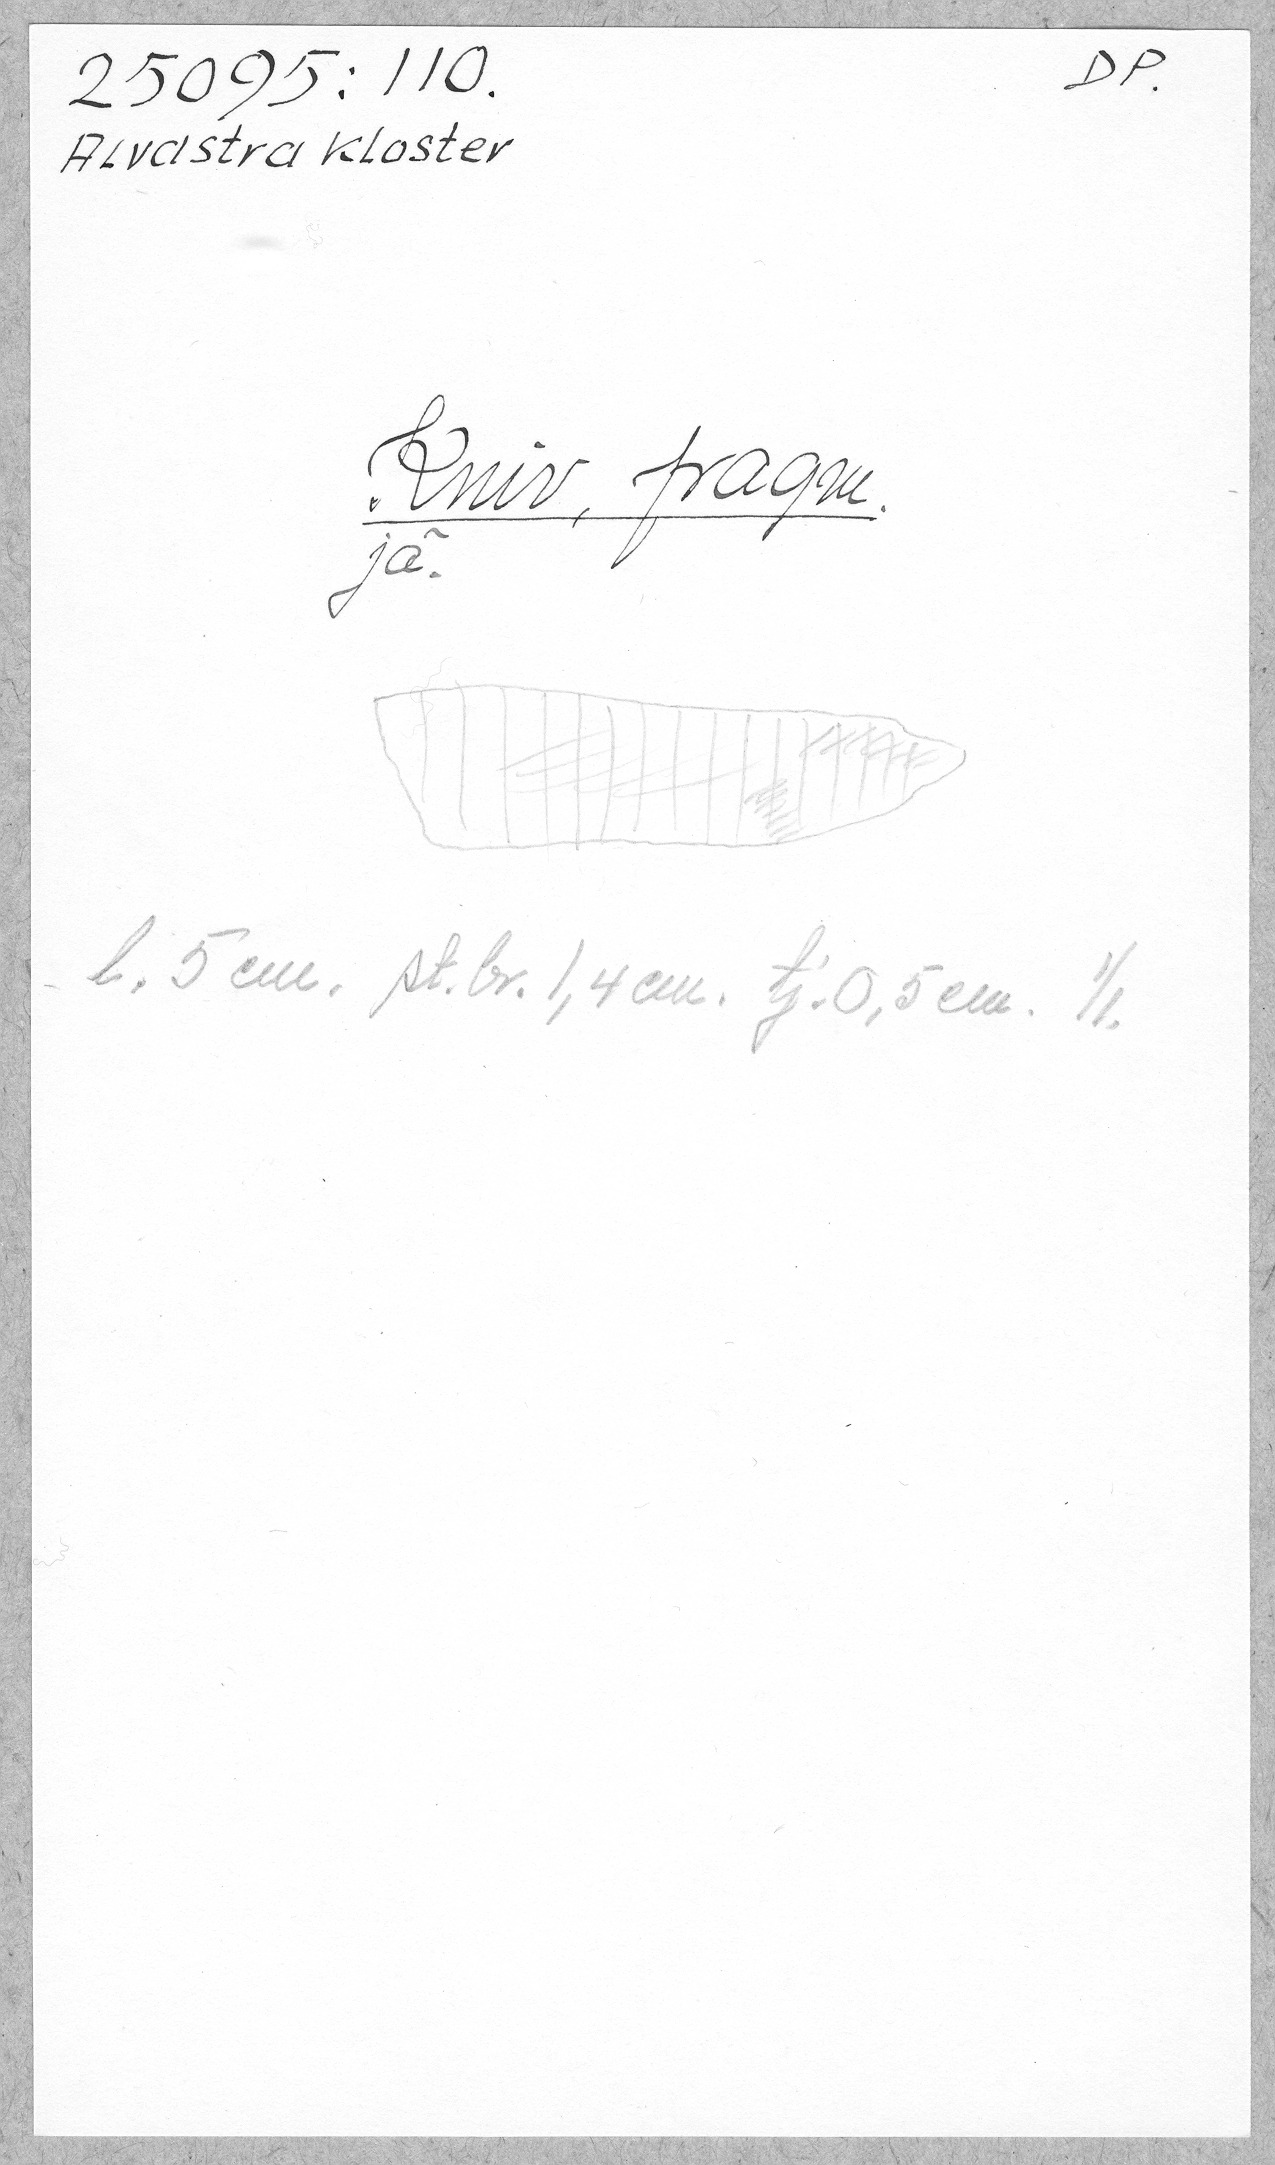 25095:110.
DP.
Alvastra kloster
Kniv, fragm.
jä.
l. 5 cm. st. br. 1,4 cm. tj. 0,5 cm. 1/1.